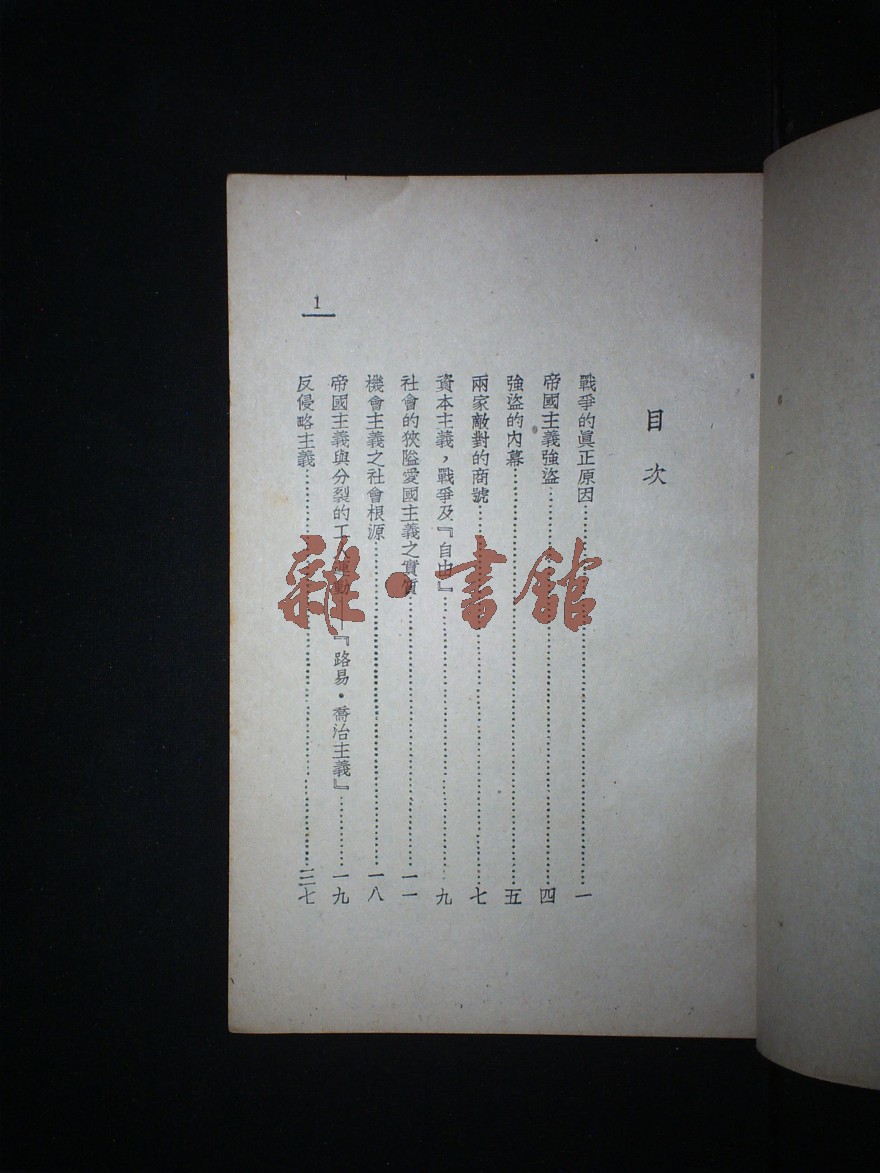 目次
戰爭的眞正原因……一
帝國主義強盜……四
強盜的內幕……五
兩家敵對的商號……七
資本主義，戰爭及『自由』……九
社會的狹隘愛國主義之實質……一一
機會主義之社會根源……一八
帝國主義與分裂的工人運動——『路易·喬治主義』……一九
反侵略主義……三七
1
雜·書館